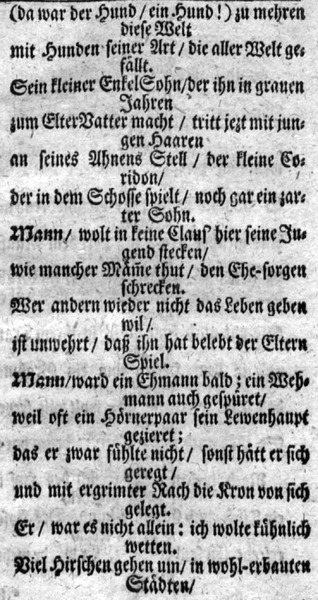 (da war der Hund / ein Hund!) zu mehren
diese Welt
mit Hunden seiner Art / die aller Welt ge-
fällt.
Sein kleiner EnkelSohn / der ihn in grauen
Jahren
zum ElterVatter macht / tritt jezt mit jun-
gen Haaren
an seines Ahnens Stell / der kleine Co-
ridon /
der in dem Schosse spielt / noch gar ein zar-
ter Sohn.
Mann / wolt in keine Clauß hier seine Ju-
gend stecken /
wie mancher Mam̃e thut / den Ehe-sorgen
schrecken.
Wer andern wieder nicht das Leben geben
wil /
ist unwehrt / daß ihn hat belebt der Eltern
Spiel.
Mann / ward ein Ehmann bald; ein Weh-
mann auch gespüret /
weil oft ein Hörnerpaar sein Lewenhaupt
gezieret;
das er zwar fühlte nicht / sonst hätt er sich
geregt /
und mit ergrimter Rach die Kron von sich
gelegt.
Er / war es nicht allein: ich wolte kühnlich
wetten.
Viel Hirschen gehen um / in wohl-erbauten
Städten /